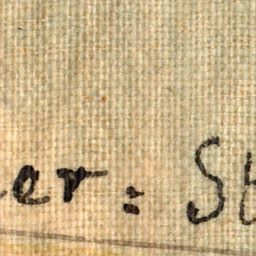 er: St